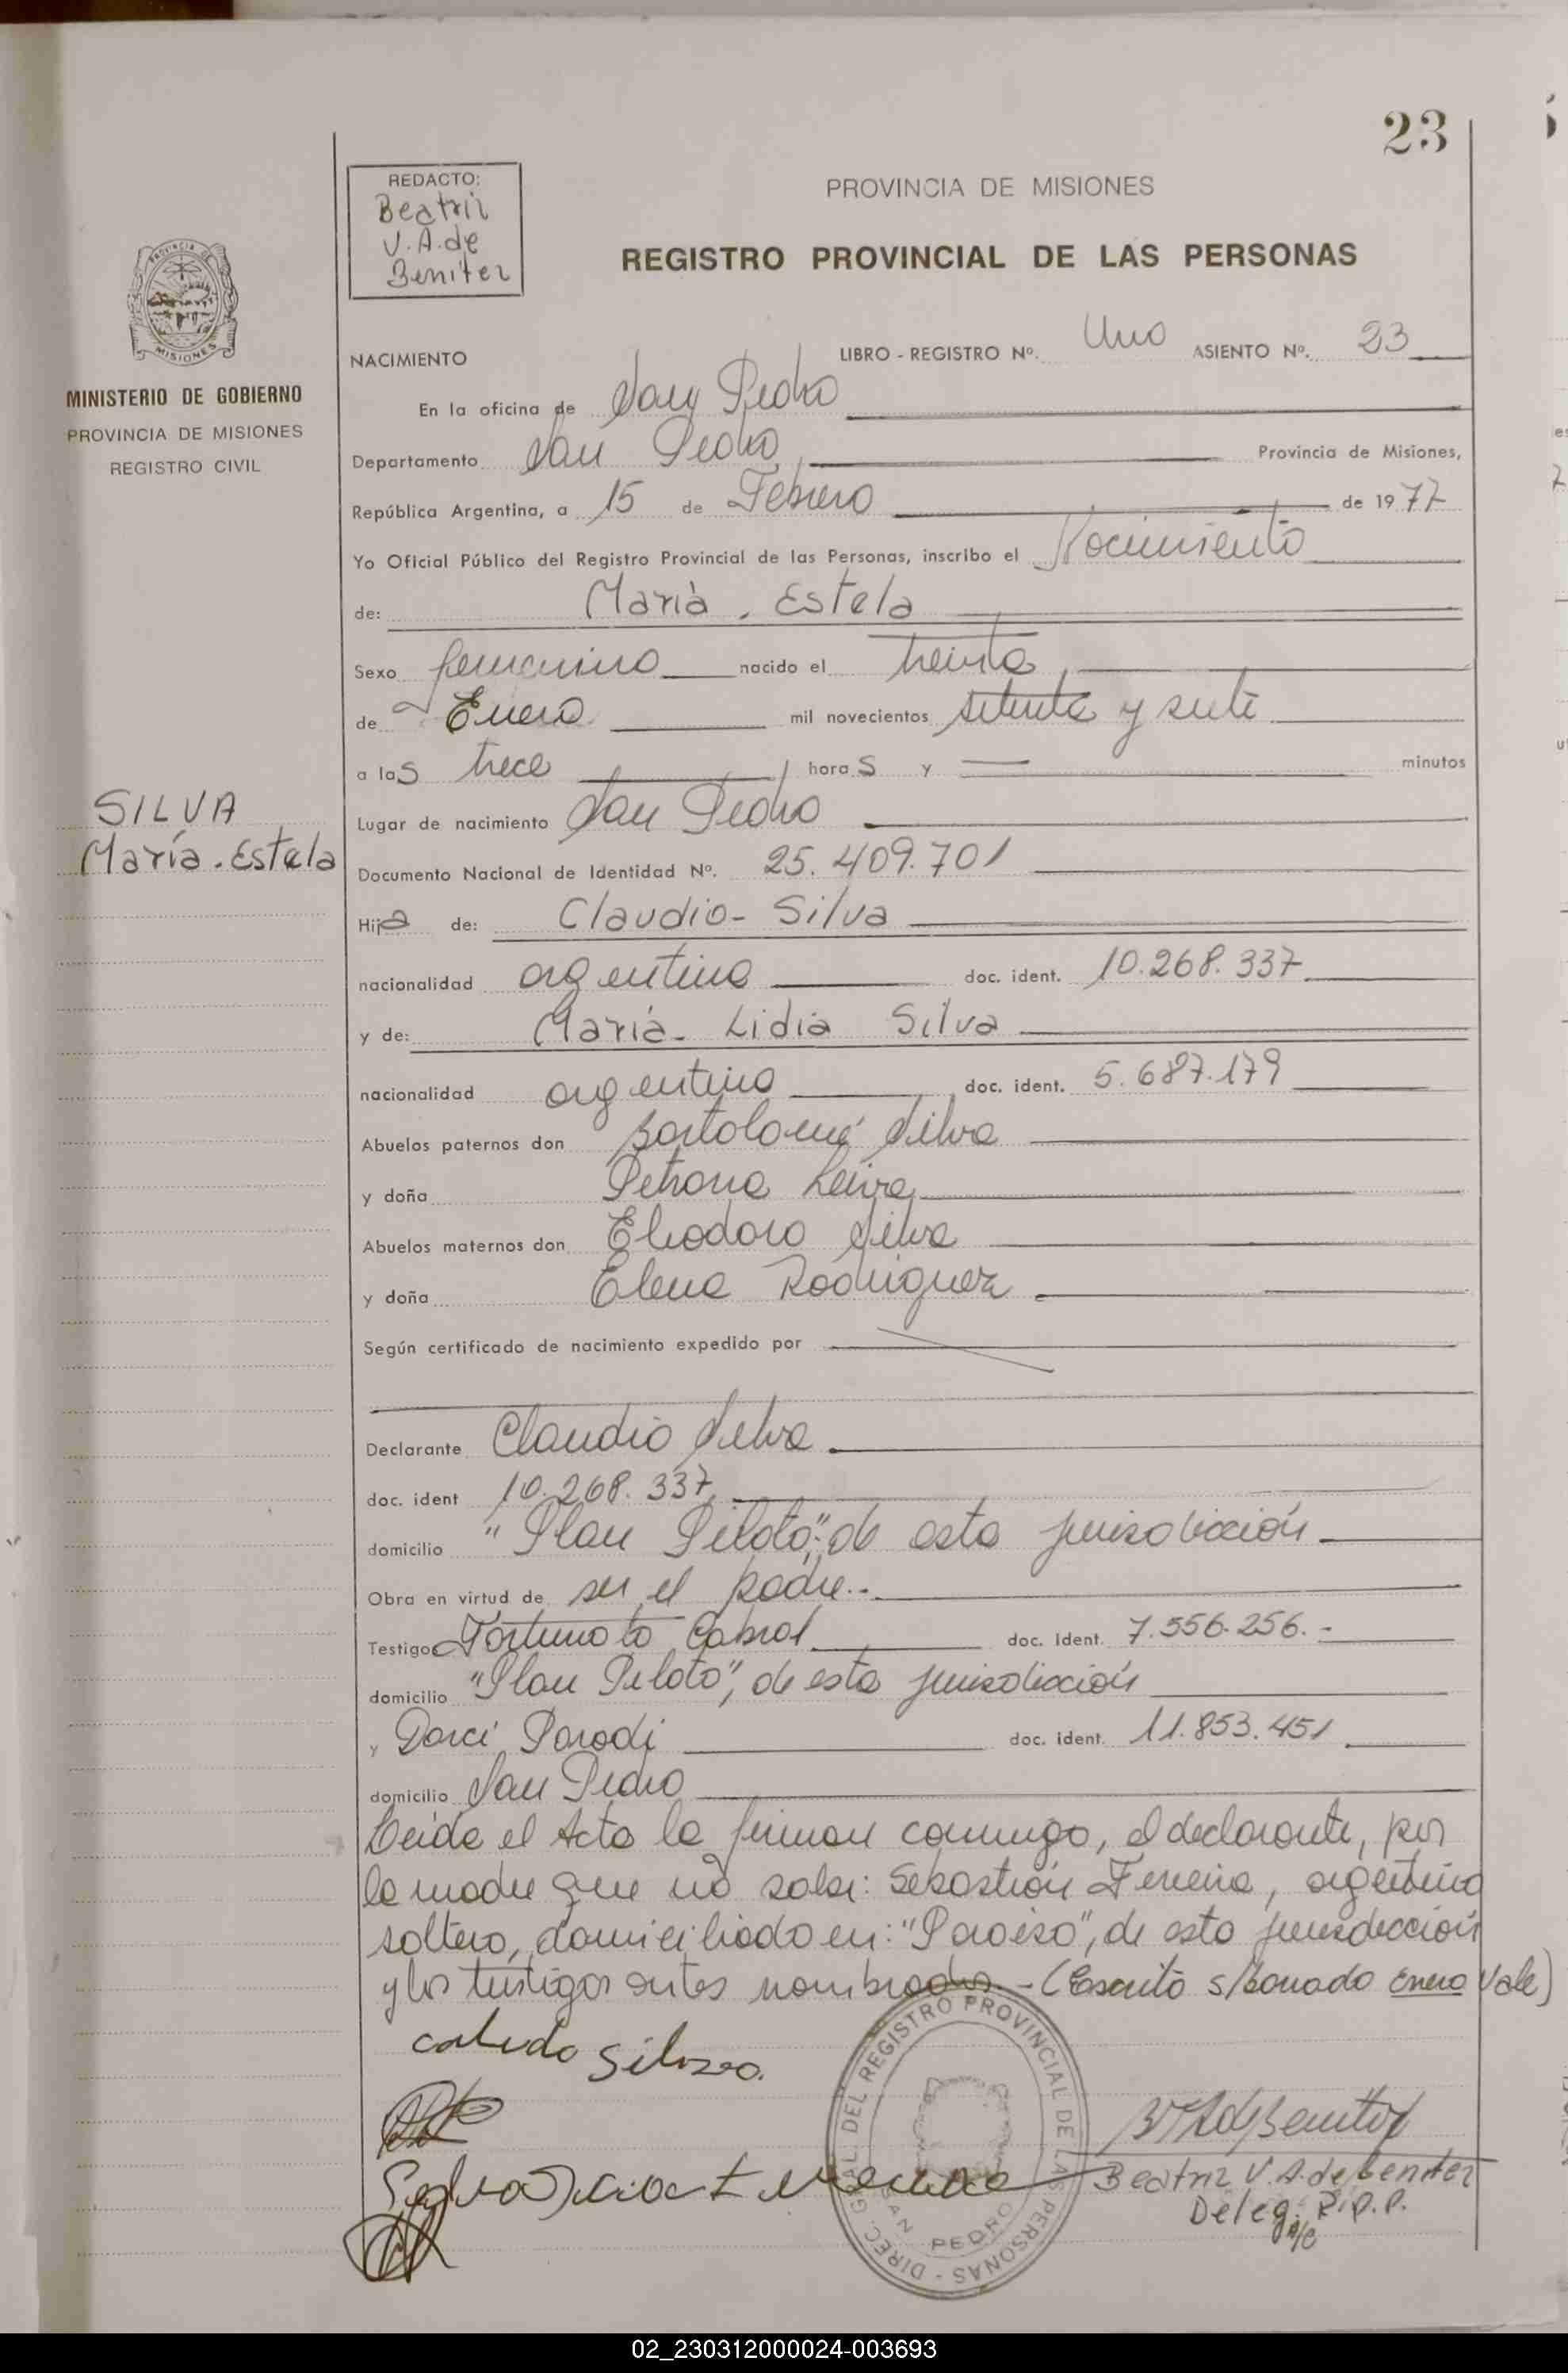 23
REDACTO:
Beatriz
V.A.de
Benitez
PROVINCIA DE MISIONES
REGISTRO PROVINCIAL DE LAS PERSONAS
PROVINCIA DE
MISIONES
MINISTERIO DE GOBIERNO
PROVINCIA DE MISIONES
REGISTRO CIVIL
NACIMIENTO LIBRO - REGISTRO Nº. Uno ASIENTO Nº. 23
En la oficina de San Pedro
Departamento San Pedro Provincia de Misiones,
República Argentina, a 15 de Febrero de 1977
Yo Oficial Público del Registro Provincial de las Personas, inscribo el Nacimiento
de: Marià . Estela
Sexo femenino nacido el treinta
de Enero mil novecientos setenta y siete
a las trece horas y = minutos
SILVA
María . Estela
Lugar de nacimiento San Pedro
Documento Nacional de Identidad Nº. 25.409.701
Hija de: Claudio - Silva
nacionalidad argentina doc. ident. 10.268.337
y de: Maria - Lidia Silva
nacionalidad argentina doc. ident. 5.687.179
Abuelos paternos don Bartolomé Silva
y doña Petrona Leiva
Abuelos maternos don Eliodoro Silva
y doña Elena Rodriguez
Según certificado de nacimiento expedido por
Declarante Claudio Silva
doc. ident 10.268.337
domicilio "Plan Piloto", de esta jurisdicción
Obra en virtud de ser el padre.-
Testigo Fortunato Cabral doc. Ident. 7.556.256.-
domicilio "Plan Piloto", de esta jurisdicción
y Darci Parodi doc. ident. 11.853.451
domicilio San Pedro
Leida el Acta la firman conmigo, el declarante, por
la madre que no sabe: Sebastián Ferreira, argentino
soltero, domiciliado en: "Paraiso", de esta jurisdicción
y los testigos antes nombrados.- (Escrito s/borrado Enero Vale)
DIREC. GRAL. DEL REGISTRO PROVINCIAL DE LAS PERSONAS -
SAN PEDRO
Beatriz V.A. de Benitez
Deleg. R.P.P.
A/C
02_230312000024-003693